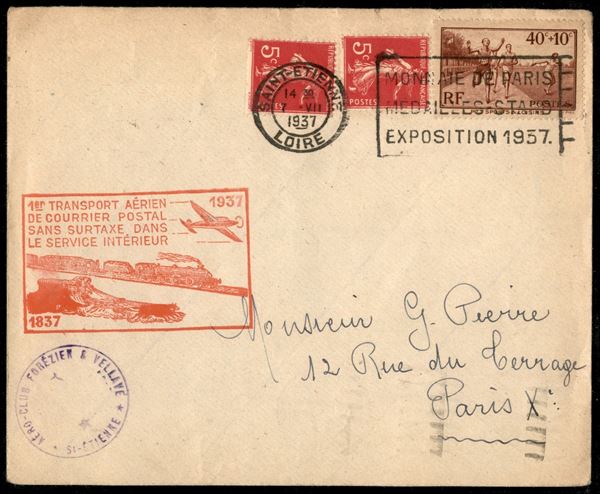 5c
RÉPUBLIQUE FRANÇAISE
POSTES
5c
RÉPUBLIQUE FRANÇAISE
POSTES
40c+10c
RF
POSTES
SAINT-ETIENNE
14 30
7 - VII
1937
LOIRE
MONNAIE DE PARIS
MEDAILLES-STAND
EXPOSITION 1937.
1er TRANSPORT AÉRIEN 1937
DE COURRIER POSTAL
SANS SURTAXE DANS
LE SERVICE INTÉRIEUR
1837
AÉRO-CLUB FORÉZIEN & VELLAVE
ST-ÉTIENNE
Monsieur G. Pierre
12 Rue du Terrage
Paris Xe